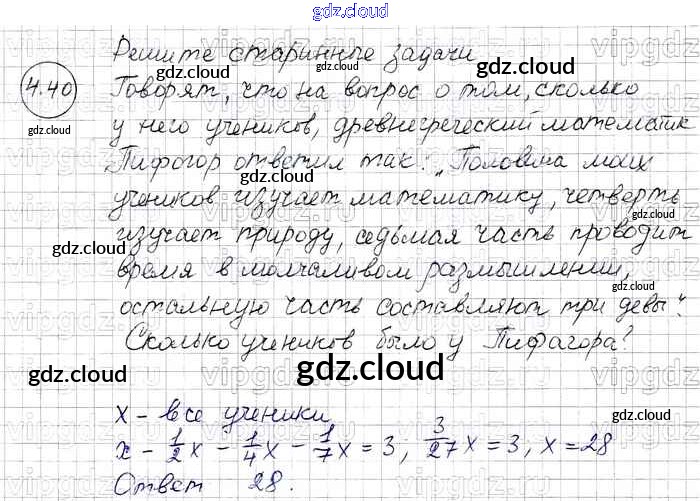 gdz.cloud
Решите старинные задачи
gdz.cloud gdz.cloud
4.40 Говорят, что на вопрос о том, сколько
gdz.cloud у него учеников, древнегреческий математик
Пифогор ответил так: „Половина моих
учеников изучает математику, четверть
изучает природу, седьмая часть проводит
gdz.cloud gdz.cloud gdz.cloud
время в молчаливом размышлении,
остальную часть составляют три девы".
Сколько учеников было у Пифагора?
gdz.cloud gdz.cloud gdz.cloud
x - все ученики
x - 1/2x - 1/4x - 1/7x = 3; 3/27x = 3, x = 28
Ответ 28.
gdz.cloud gdz.cloud